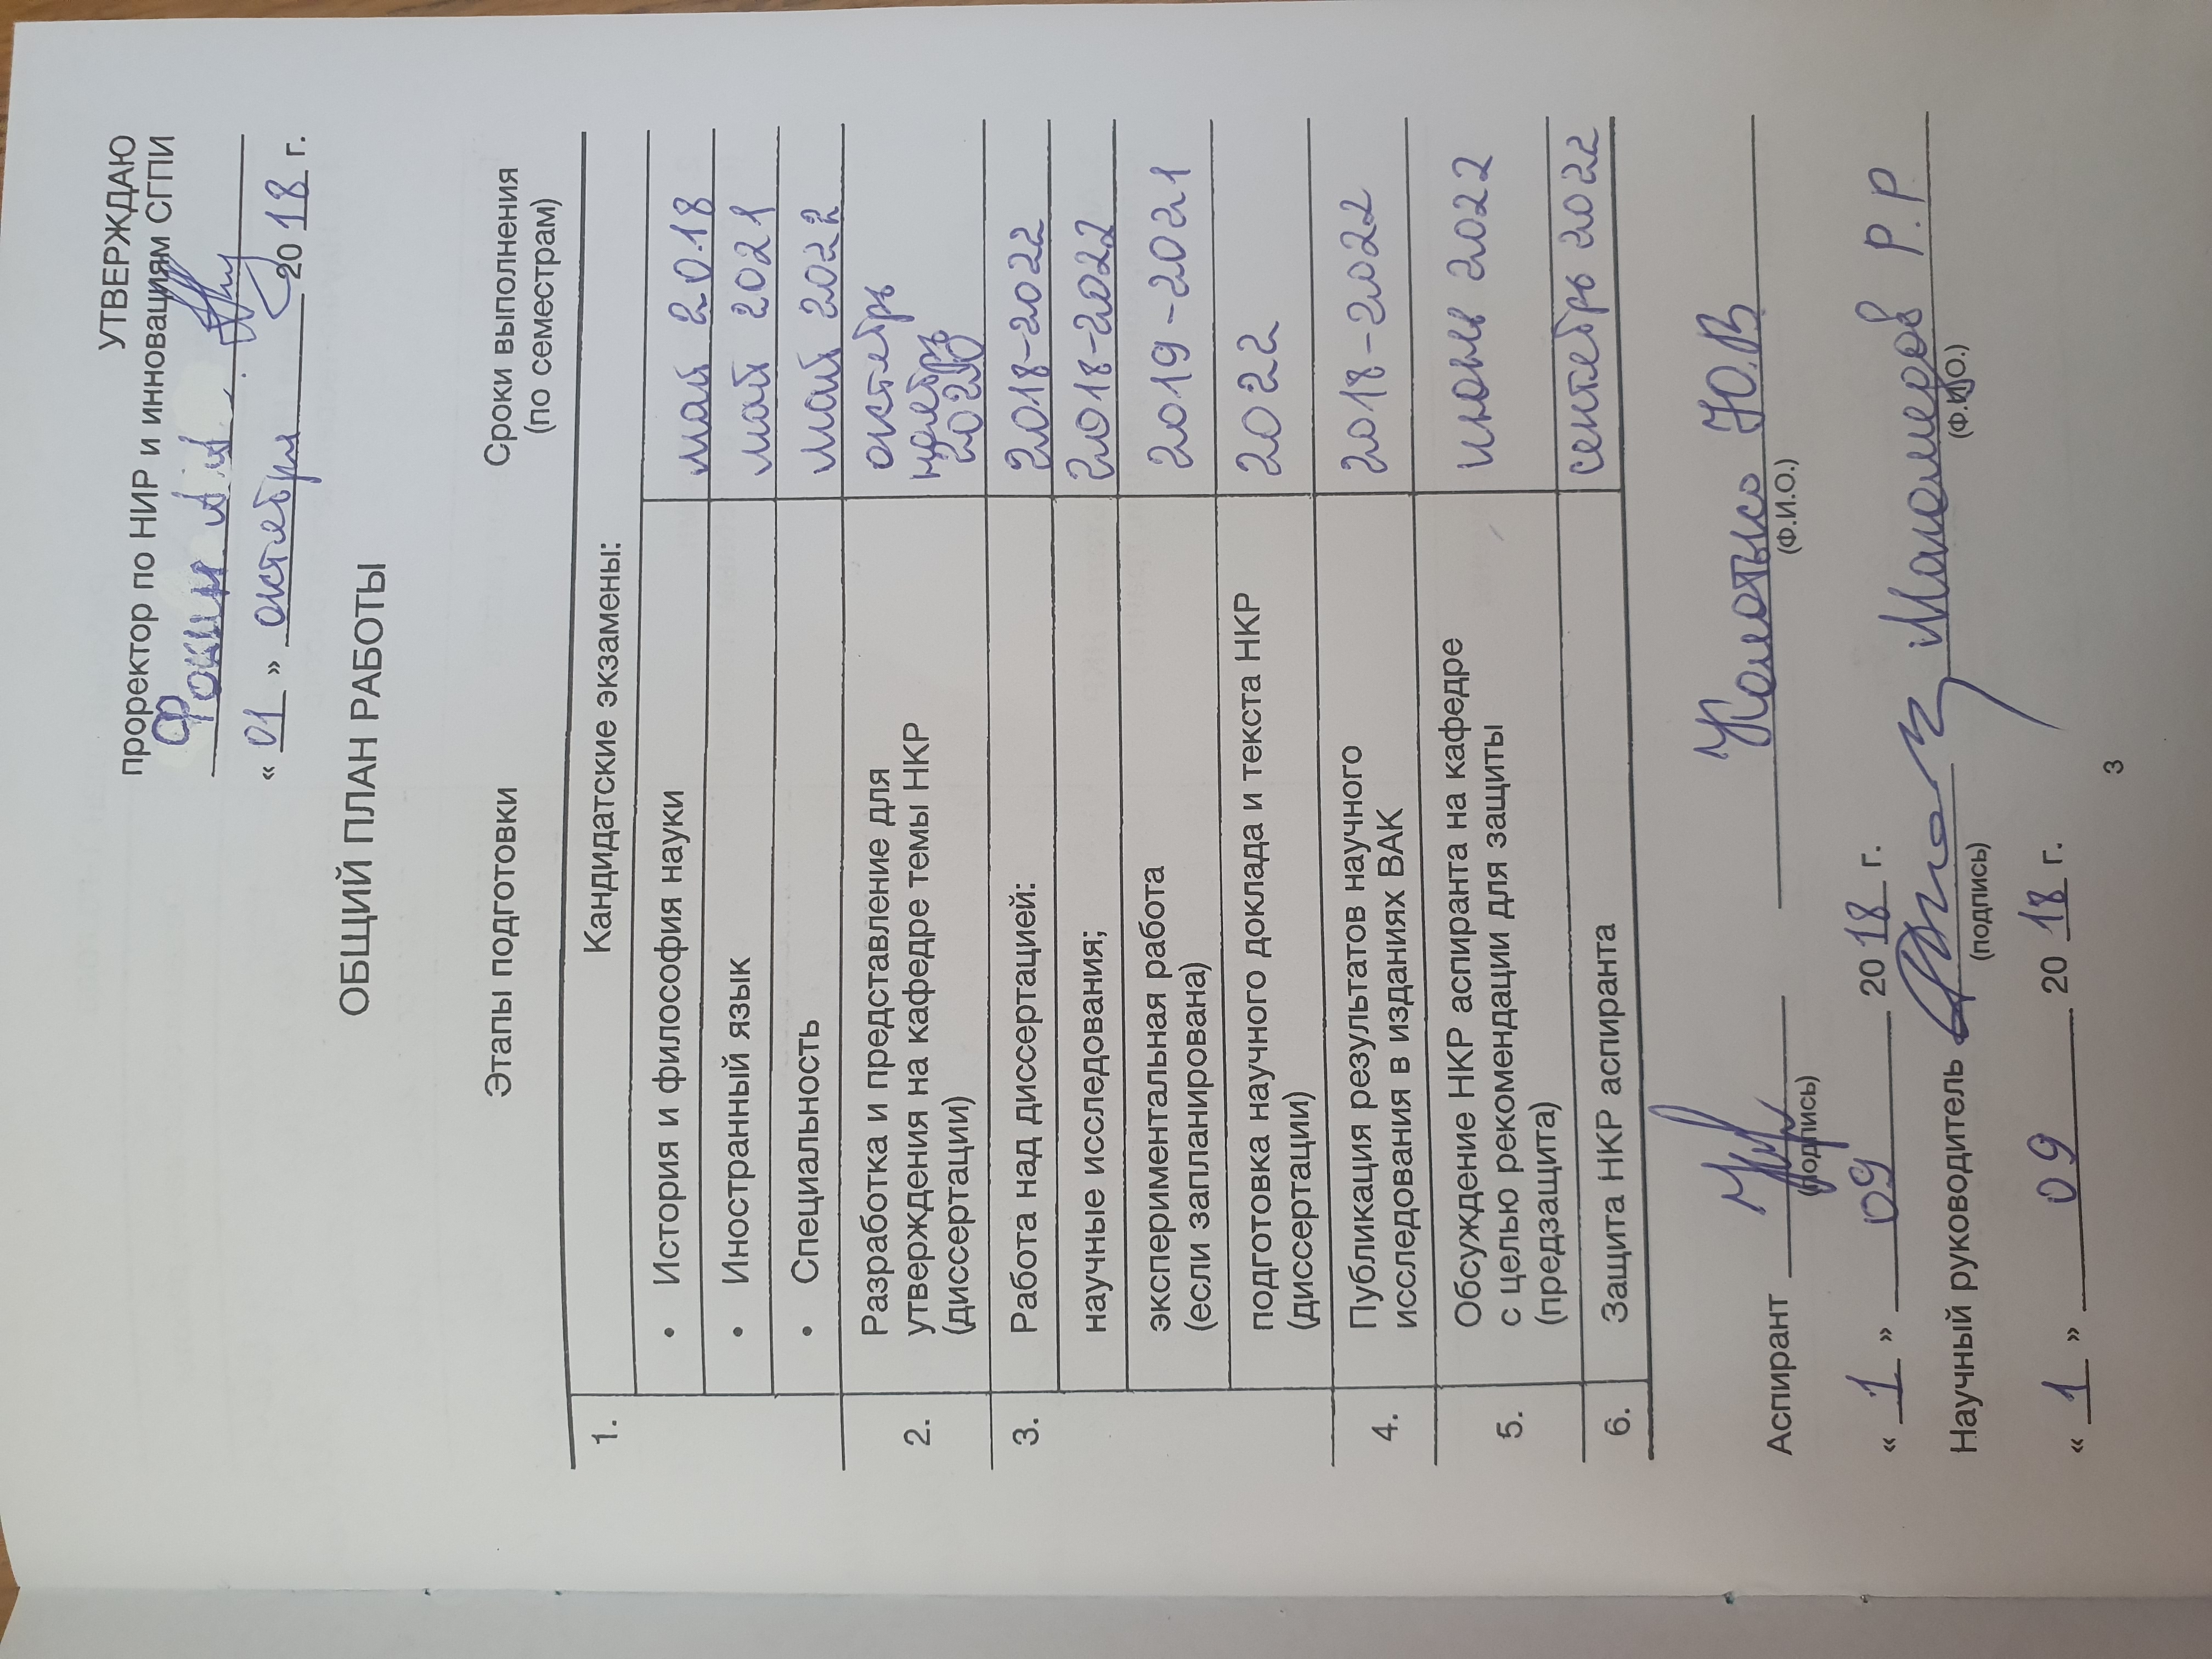 УТВЕРЖДАЮ
проректор по НИР и инновациям СГПИ
« 01 » октября 20 18 г.
ОБЩИЙ ПЛАН РАБОТЫ
Этапы подготовки Сроки выполнения
(по семестрам)
1. Кандидатские экзамены:
• История и философия науки май 2018
• Иностранный язык май 2021
• Специальность май 2022
2. Разработка и представление для октябрь
утверждения на кафедре темы НКР
(диссертации) 2020
3. Работа над диссертацией: 2018-2022
научные исследования; 2018-2022
экспериментальная работа 2019-2021
(если запланирована)
подготовка научного доклада и текста НКР 2022
(диссертации)
4. Публикация результатов научного 2018-2022
исследования в изданиях ВАК
5. Обсуждение НКР аспиранта на кафедре июнь 2022
с целью рекомендации для защиты
(предзащита)
6. Защита НКР аспиранта сентябрь 2022
Аспирант Ю.В
(подпись) (Ф.И.О.)
« 1 » 09 20 18 г.
Научный руководитель Р.Р
(подпись) (Ф.И.О.)
« 1 » 09 20 18 г.
3